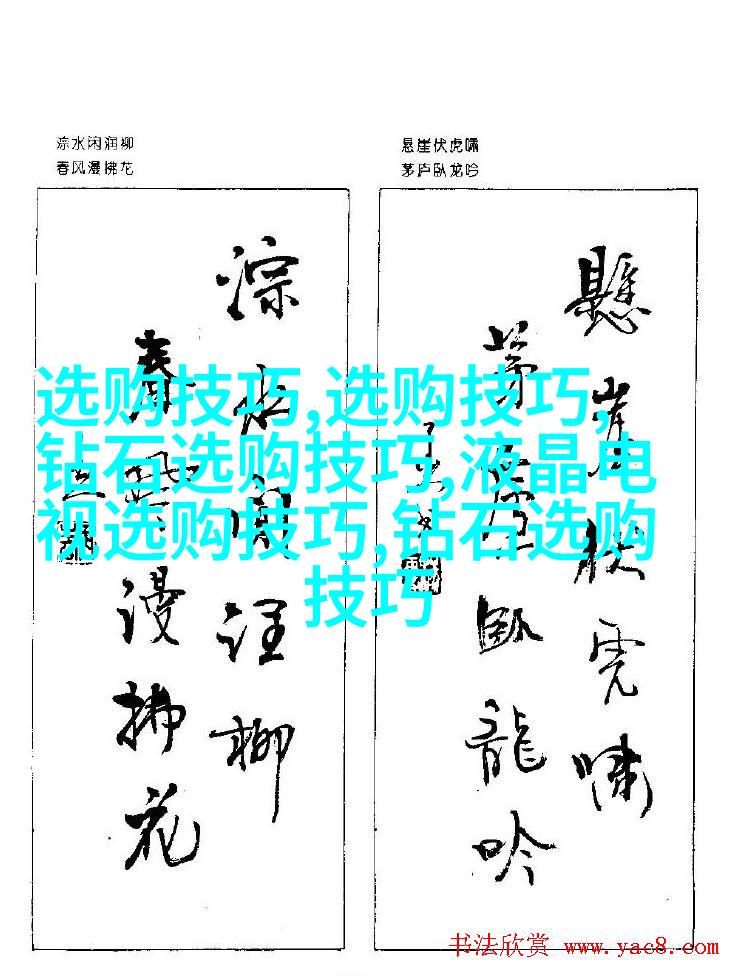 淙水闲润柳
春风漫拂花
悬崖伏虎嘯
茅庐卧龙吟
淙水閑潤柳
春風漫拂花
懸崖伏虎嘯
茅廬臥龍吟
选购技巧,选购技巧,
钻石选购技巧,液晶电
视选购技巧,钻石选购
技巧
书法欣赏 www.yac8.com